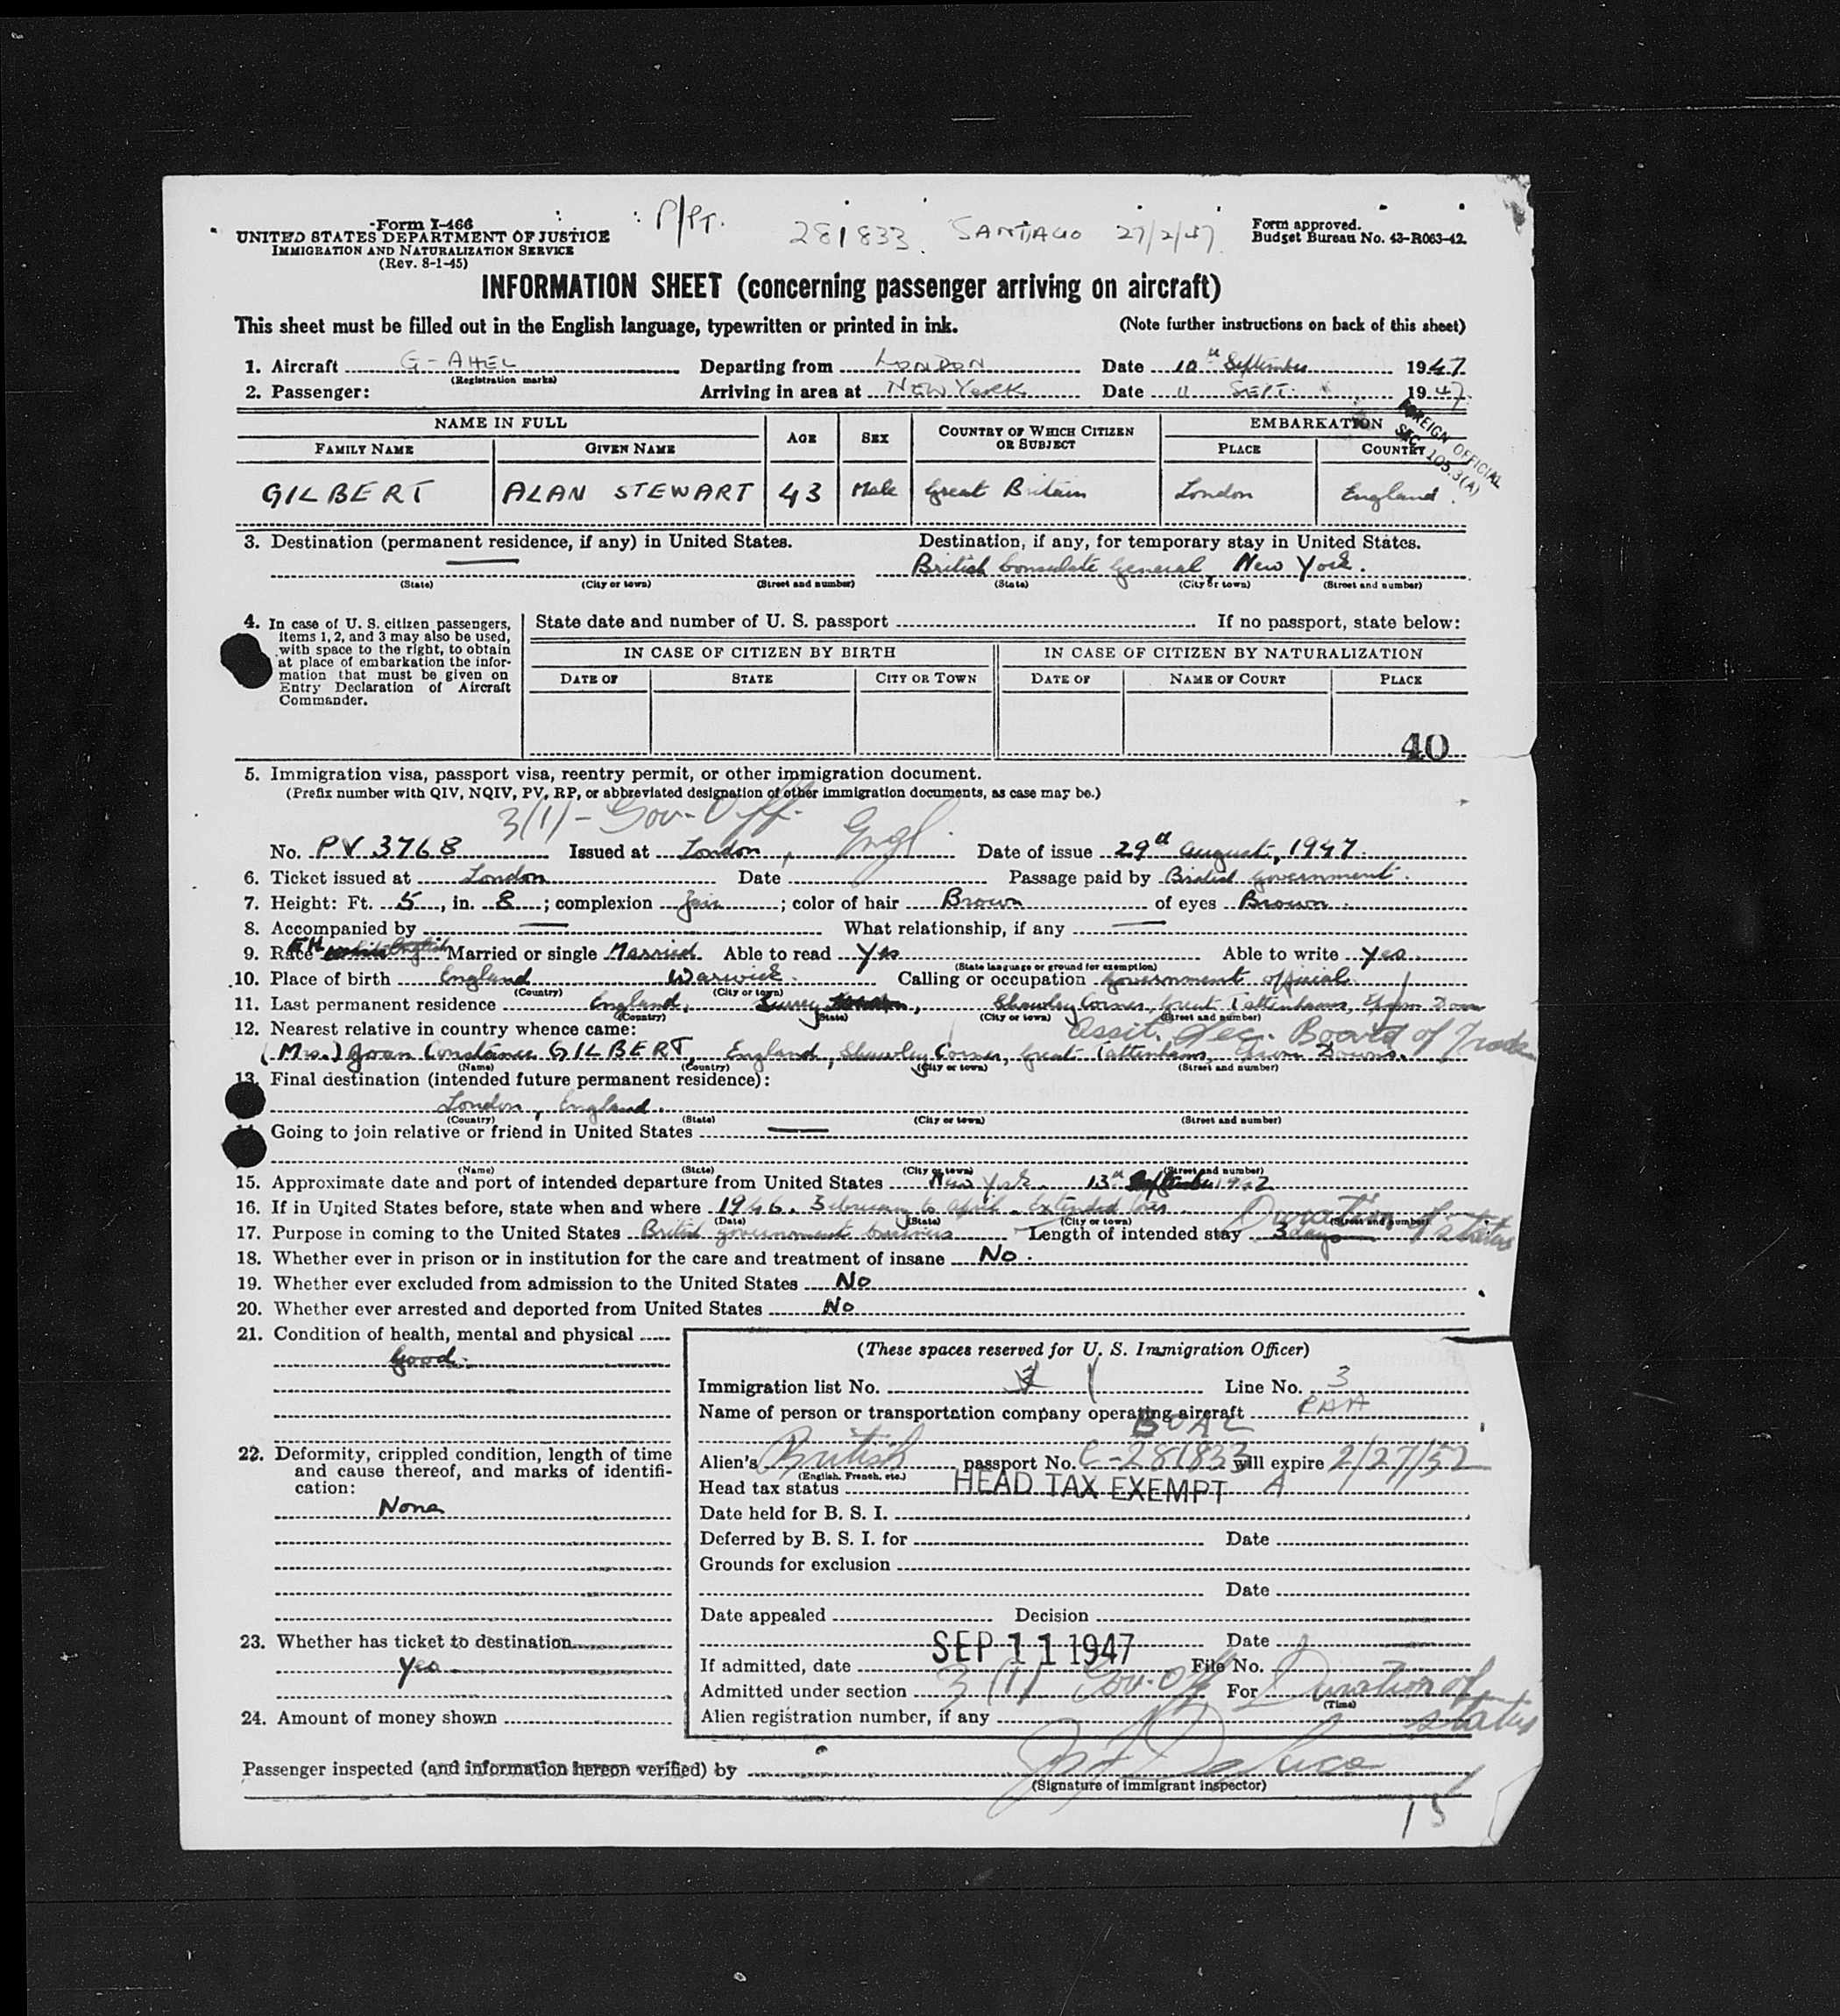 Form I-466
UNITED STATES DEPARTMENT OF JUSTICE
IMMIGRATION AND NATURALIZATION SERVICE
(Rev. 8-1-45)
P/PT. 281833. SANTIAGO 27/2/47
Form approved.
Budget Bureau No. 43-R063-42.
INFORMATION SHEET (concerning passenger arriving on aircraft)
This sheet must be filled out in the English language, typewritten or printed in ink. (Note further instructions on back of this sheet)
1. Aircraft G-AHEL Departing from LONDON Date 10th September 1947
(Registration marks)
2. Passenger: Arriving in area at NEW YORK Date 11 SEPT. 1947
FOREIGN OFFICIAL
SEC. 105.3(A)
NAME IN FULL AGE SEX COUNTRY OF WHICH CITIZEN OR SUBJECT EMBARKATION
FAMILY NAME GIVEN NAME PLACE COUNTRY
GILBERT ALAN STEWART 43 Male Great Britain London England.
3. Destination (permanent residence, if any) in United States. Destination, if any, for temporary stay in United States.
— British Consulate General New York.
(State) (City or town) (Street and number) (State) (City or town) (Street and number)
4. In case of U. S. citizen passengers, items 1, 2, and 3 may also be used, with space to the right, to obtain at place of embarkation the information that must be given on Entry Declaration of Aircraft Commander.
State date and number of U. S. passport If no passport, state below:
IN CASE OF CITIZEN BY BIRTH IN CASE OF CITIZEN BY NATURALIZATION
DATE OF STATE CITY OR TOWN DATE OF NAME OF COURT PLACE
40
5. Immigration visa, passport visa, reentry permit, or other immigration document.
(Prefix number with QIV, NQIV, PV, RP, or abbreviated designation of other immigration documents, as case may be.)
3(1) - Gov. Off. Engl.
No. PV 3768 Issued at London, Date of issue 29th August, 1947.
6. Ticket issued at London Date Passage paid by British Government.
7. Height: Ft. 5, in. 8; complexion fair; color of hair Brown of eyes Brown.
8. Accompanied by — What relationship, if any —
9. Race Married or single Married Able to read Yes Able to write Yes
(State language or ground for exemption)
10. Place of birth England Warwick. Calling or occupation Government official
(Country) (City or town)
11. Last permanent residence England, Surrey, Shawley Corner, Great Tattenhams, Epsom Downs
(Country) (State) (City or town) (Street and number)
Assit. Sec. Board of Trade
12. Nearest relative in country whence came:
(Mrs.) Joan Constance GILBERT, England, Shawley Corner, Great Tattenhams, Epsom Downs.
(Name) (Country) (City or town) (Street and number)
13. Final destination (intended future permanent residence):
London, England.
(Country) (State) (City or town) (Street and number)
Going to join relative or friend in United States —
(Name) (State) (City or town) (Street and number)
15. Approximate date and port of intended departure from United States New York. 13th September 1947
16. If in United States before, state when and where 1946. February to April. Extended
(Date) (State) (City or town) (Street and number)
Duration of status
17. Purpose in coming to the United States British government business Length of intended stay 3 days
18. Whether ever in prison or in institution for the care and treatment of insane No.
19. Whether ever excluded from admission to the United States No
20. Whether ever arrested and deported from United States No
21. Condition of health, mental and physical
Good.
22. Deformity, crippled condition, length of time and cause thereof, and marks of identification:
None
23. Whether has ticket to destination
Yes
24. Amount of money shown
(These spaces reserved for U. S. Immigration Officer)
Immigration list No. 1 Line No. 3
Name of person or transportation company operating aircraft PAA
BOAC
Alien's British passport No. C-281833 will expire 2/27/52
(English, French, etc.)
Head tax status HEAD TAX EXEMPT A
Date held for B. S. I.
Deferred by B. S. I. for Date
Grounds for exclusion
Date
Date appealed Decision
Date
If admitted, date SEP 11 1947 File No.
Admitted under section 3(1) Gov. Off For Duration of status
(Time)
Alien registration number, if any
Passenger inspected (and information hereon verified) by
(Signature of immigrant inspector)
15